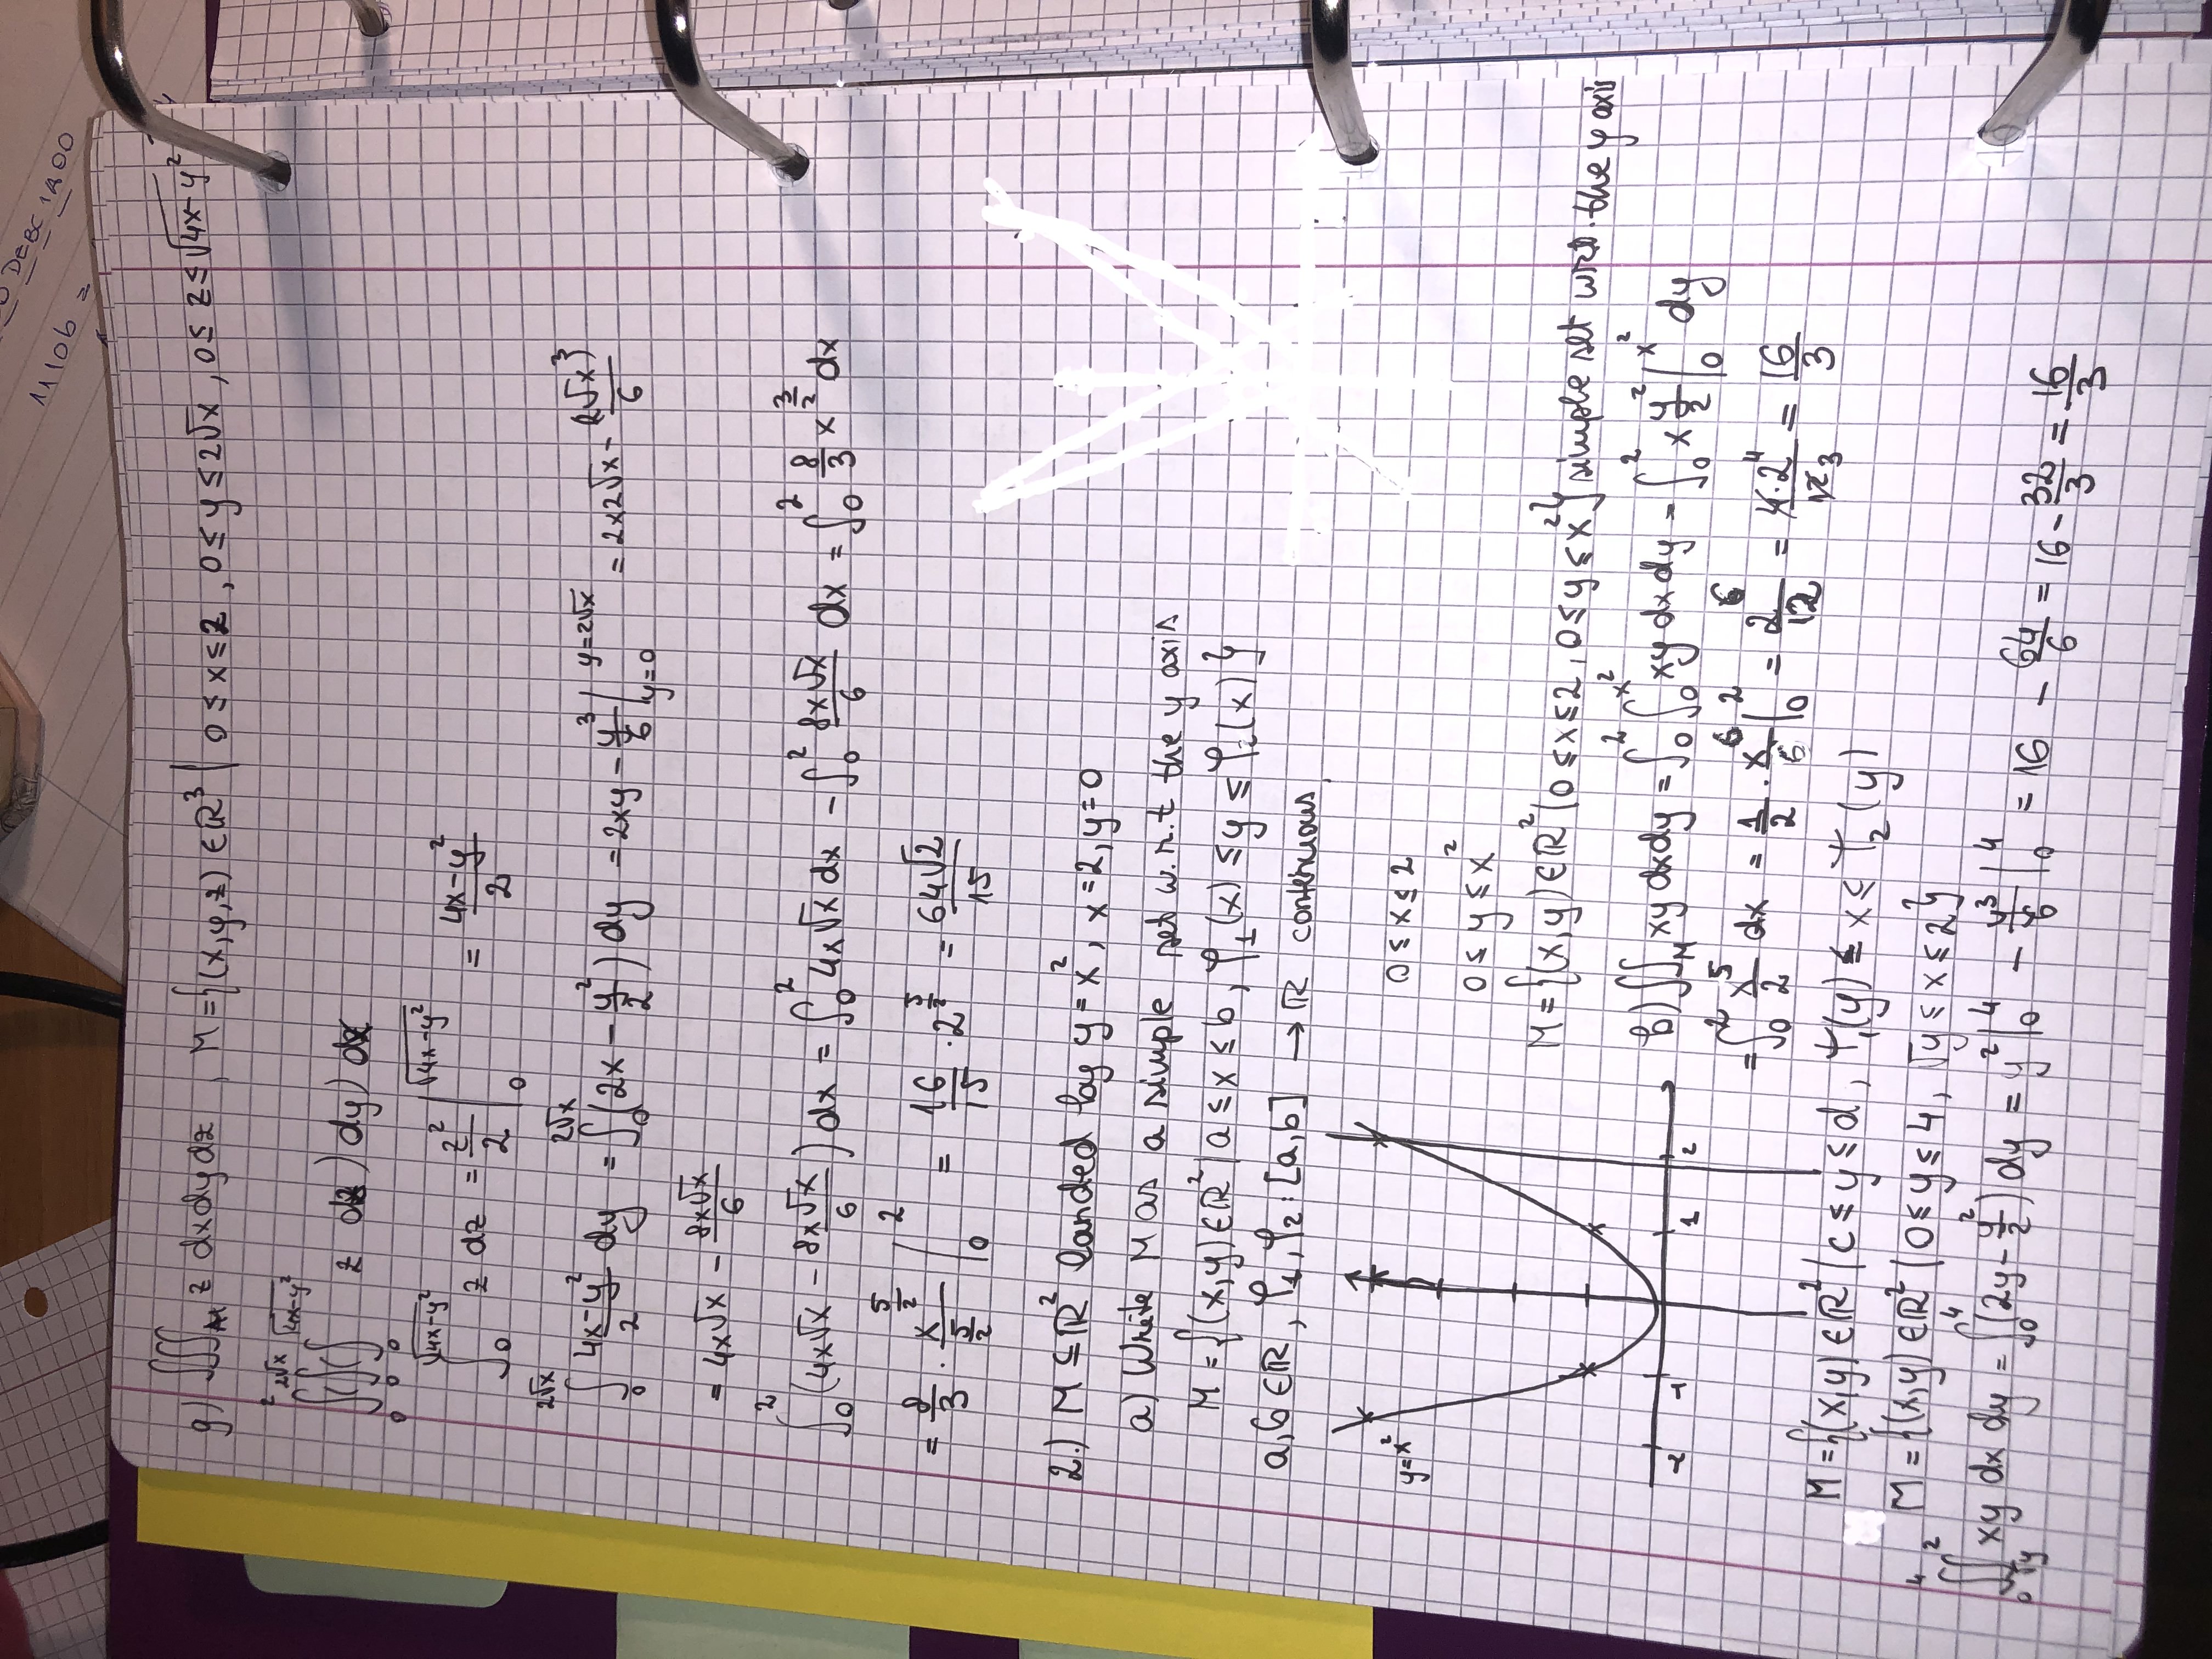 DEBC 1A00
1110b =
g) ∭_M z dxdydz , M = {(x,y,z) ∈ ℝ³ | 0 ≤ x ≤ 2 , 0 ≤ y ≤ 2√x , 0 ≤ z ≤ √(4x-y²)
∫₀²(∫₀^(2√x)(∫₀^(√(4x-y²)) z dz) dy) dx
∫₀^(√(4x-y²)) z dz = z²/2 |₀^(√(4x-y²)) = (4x-y²)/2
∫₀^(2√x) (4x-y²)/2 dy = ∫₀^(2√x) (2x - y²/2) dy = 2xy - y³/6 |_(y=0)^(y=2√x) = 2x2√x - (2√x)³/6
= 4x√x - 8x√x/6
∫₀² (4x√x - 8x√x/6) dx = ∫₀² 4x√x dx - ∫₀² 8x√x/6 dx = ∫₀² 8/3 x^(3/2) dx
= 8/3 · x^(5/2)/(5/2) |₀² = 16/15 · 2^(5/2) = 64√2/15
2.) M ⊆ ℝ² banded by y = x², x = 2, y = 0
a) Write M as a simple set w.r.t the y axis
M = {(x,y) ∈ ℝ² | a ≤ x ≤ b , φ₁(x) ≤ y ≤ φ₂(x)}
a,b ∈ ℝ , φ₁, φ₂ : [a,b] → ℝ contenuous
y=x²
-2 -1 1 2
0 ≤ x ≤ 2
0 ≤ y ≤ x²
M = {(x,y) ∈ ℝ² | 0 ≤ x ≤ 2, 0 ≤ y ≤ x²} simple set w.r.t. the y axis
b) ∬_M xy dxdy = ∫₀² ∫₀^(x²) xy dx dy = ∫₀² x y²/2 |₀^(x²) dy
= ∫₀² x⁵/2 dx = 1/2 · x⁶/6 |₀² = 2⁶/12 = 4·2⁴/12 3 = 16/3
M = {(x,y) ∈ ℝ² | c ≤ y ≤ d , Ψ₁(y) ≤ x ≤ Ψ₂(y)
M = {(x,y) ∈ ℝ² | 0 ≤ y ≤ 4, √y ≤ x ≤ 2}
∫₀⁴ ∫_(√y)² xy dx dy = ∫₀⁴ (2y - y²/2) dy = y² |₀⁴ - y³/6 |₀⁴ = 16 - 64/6 = 16 - 32/3 = 16/3